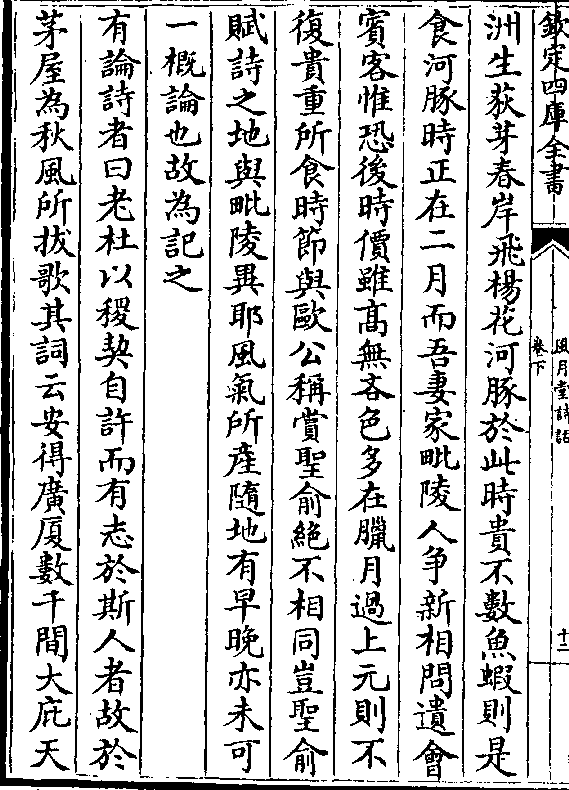 欽定四庫全書
風月堂詩話
卷下
十二
洲生荻芽春岸飛楊花河豚於此時貴不數魚蝦則是
食河豚時正在二月而吾妻家毗陵人争新相問遺會
賓客惟恐後時價雖髙無吝色多在臘月過上元則不
復貴重所食時節與歐公稱賞聖俞絶不相同豈聖俞
賦詩之地與毗陵異耶風氣所産隨地有早晚亦未可
一概論也故為記之
有論詩者曰老杜以稷契自許而有志於斯人者故於
茅屋為秋風所拔歌其詞云安得廣厦數千間大庇天